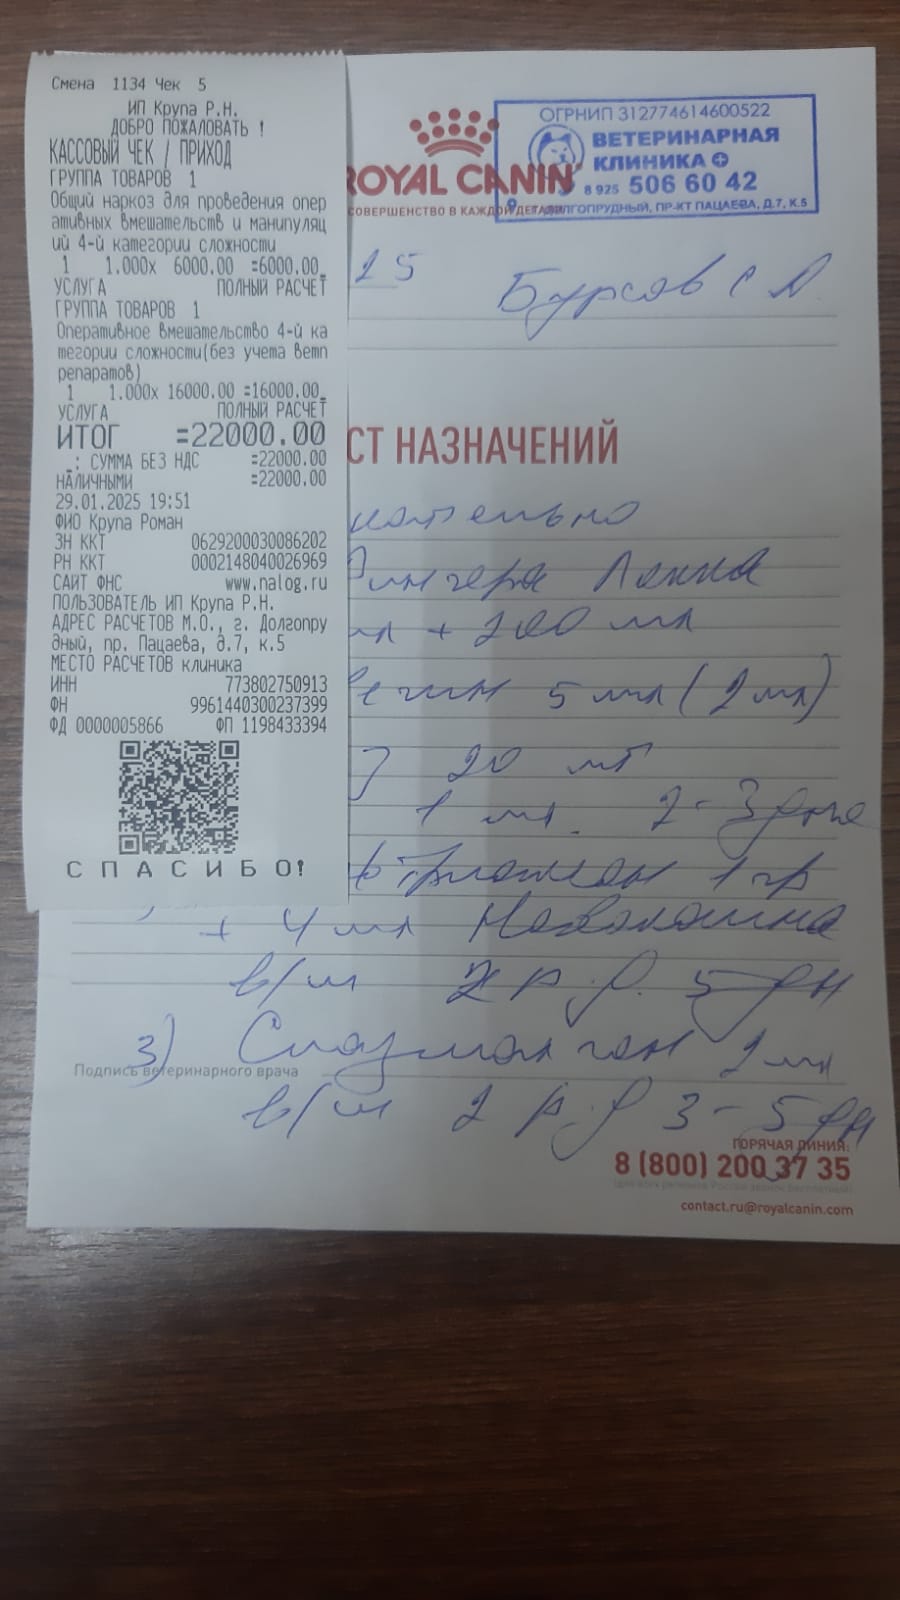 Смена 1134 Чек 5
ИП Крупа Р.Н.
ДОБРО ПОЖАЛОВАТЬ !
КАССОВЫЙ ЧЕК / ПРИХОД
ГРУППА ТОВАРОВ 1
Общий наркоз для проведения опер
ативных вмешательств и манипуляц
ий 4-й категории сложности
1 1.000x 6000.00 =6000.00_
УСЛУГА ПОЛНЫЙ РАСЧЕТ
ГРУППА ТОВАРОВ 1
Оперативное вмешательство 4-й ка
тегории сложности(без учета ветп
репаратов)
1 1.000x 16000.00 =16000.00_
УСЛУГА ПОЛНЫЙ РАСЧЕТ
ИТОГ =22000.00
_: СУММА БЕЗ НДС =22000.00
НАЛИЧНЫМИ =22000.00
29.01.2025 19:51
ФИО Крупа Роман
ЗН ККТ 0629200030086202
РН ККТ 0002148040026969
САЙТ ФНС www.nalog.ru
ПОЛЬЗОВАТЕЛЬ ИП Крупа Р.Н.
АДРЕС РАСЧЕТОВ М.О., г. Долгопру
дный, пр. Пацаева, д.7, к.5
МЕСТО РАСЧЕТОВ клиника
ИНН 773802750913
ФН 9961440300237399
ФД 0000005866 ФП 1198433394
СПАСИБО!
ROYAL CANIN
СОВЕРШЕНСТВО В КАЖДОЙ ДЕТАЛИ
ОГРНИП 312774614600522
ВЕТЕРИНАРНАЯ
КЛИНИКА
8 925 506 60 42
Г. ДОЛГОПРУДНЫЙ, ПР-КТ ПАЦАЕВА, Д.7, К.5
25
СТ НАЗНАЧЕНИЙ
Рингера Локка
мл + 200 мл
5 мл (2 мл)
20 мг
1 мл 2-3 дня
1 гр
+ 4 мл Новокаина
в/м 2 р.д. 5 дн
3) Спазмалгон 2 мл
Подпись ветеринарного врача
в/м 2 р.д 3-5 дн
ГОРЯЧАЯ ЛИНИЯ:
8 (800) 200 37 35
contact.ru@royalcanin.com